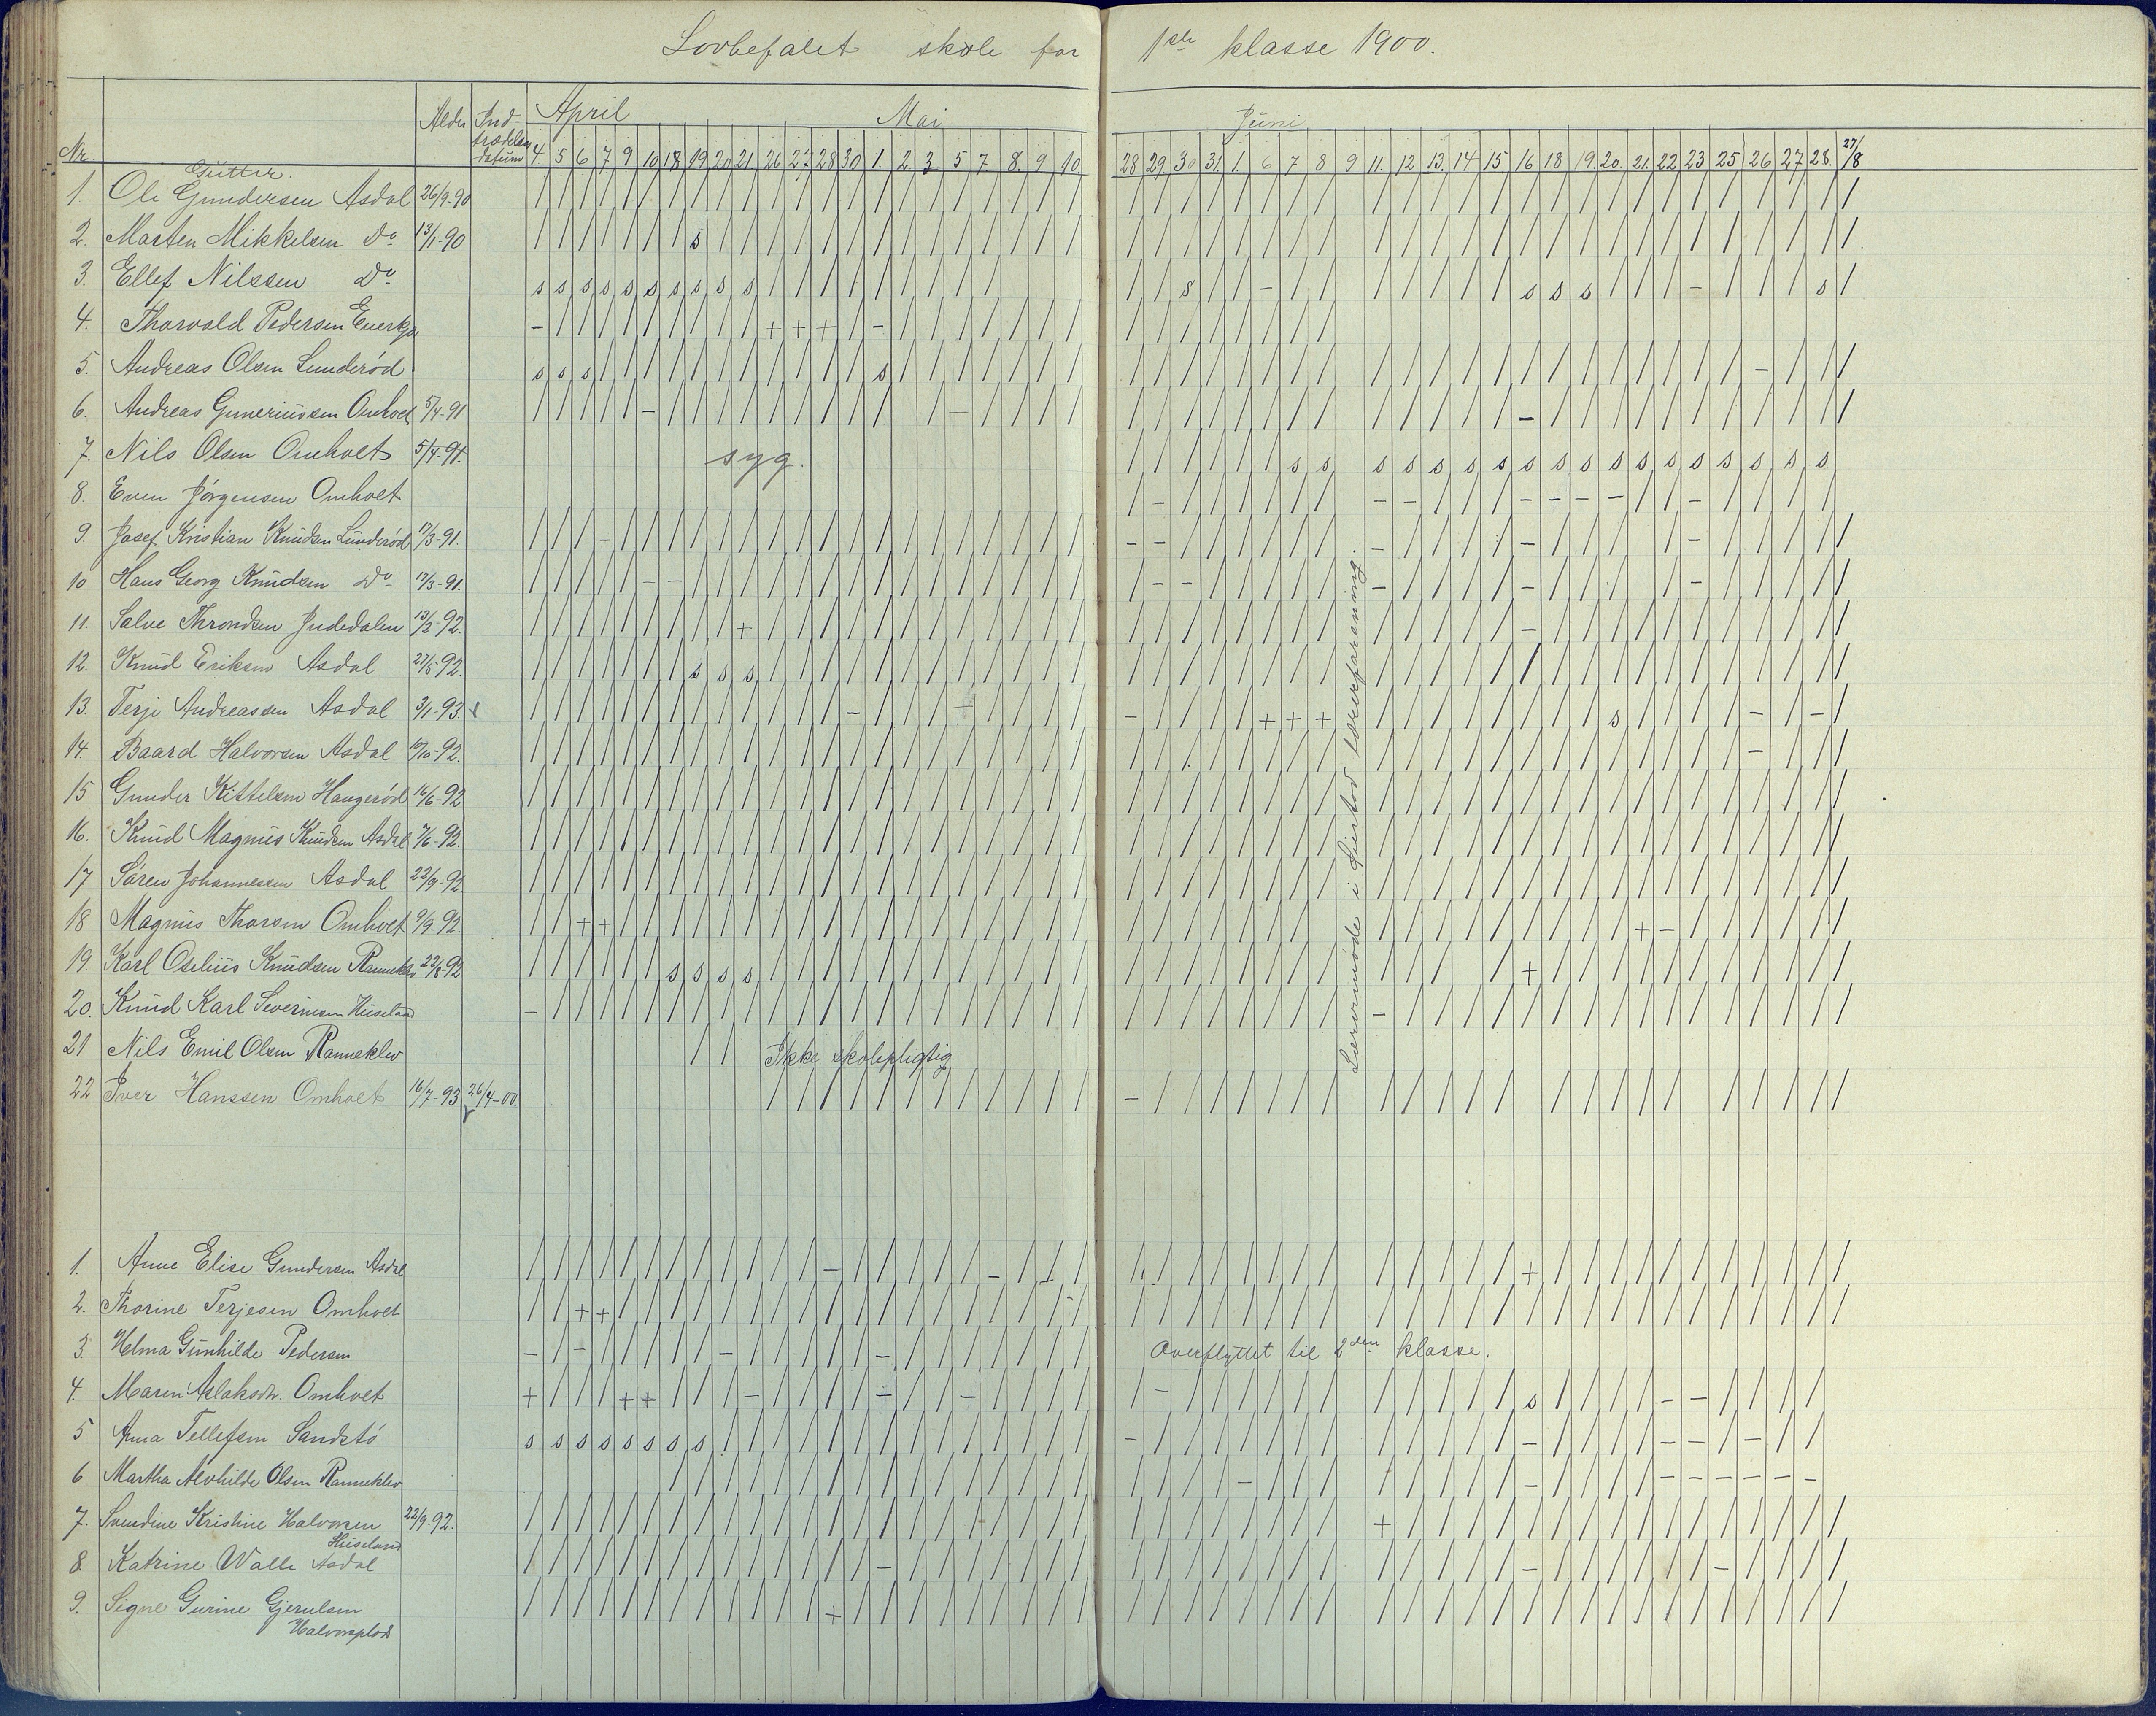 Lovbefalet skole for 1ste klasse 1900.
Nr. Alder Ind- April Mai Juni
trædelses
datum 4 5 6 7 9 10 18 19 20 21. 26 27 28 30 1. 2 3 5 7. 8. 9 10. 28 29. 30 31. 1. 6 7 8 9 11. 12 13. 14 15 16 18 19. 20. 21. 22 23 25 26 27 28. 27/8
Gutter.
1. Ole Gundersen Asdal 26/9-90 / / / / / / / / / / / / / / / / / / / / / / / / / / / / / / / / / / / / / / / / / / / / / / /
2. Marten Mikkelsen Do 13/1-90 / / / / / / / s / / / / / / / / / / / / / / / / / / / / / / / / / / / / / / / / / / / / / / /
3. Ellef Nilssen Do s s s s s s s s s s / / / / / / / / / / / s / / - / / / / / / / s s s / / / - / / / s /
4. Thorvald Pedersen - / / / / / / / / / + + + / - / / / / / / / / / / / / / / /
5. Andreas Olsen Lunderød s s s / / / / / / / / / / / s / / / / / / / / / / / / / / / / / / / / / / / / / / / / / - / / /
6. Andreas Guneriussen Omholt 5/4-91 / / / / / - / / / / / / / / / / / - / / / / / / / / / / / / / / / / / / - / / / / / / / / / / /
7. Nils Olsen Omholt 5/4-91. syg. / / / / / / s s s s s s s s s s s s s s s s s s
8. Even Jørgensen Omholt / - / / / / / / - - / / / - - - - / / - / / / /
9. Josef Kristian Knudsen Lunderød 17/3-91. / / / - / / / / / / / / / / / / / / / / / / - - / / / / / / - / / / / - / / / / / - / / / / /
10 Hans Georg Knudsen Do 17/3-91. / / / / / - - / / / / / / / / / / / / / / / / - - / / / / / - / / / / - / / / / - / / / / /
11. Salve Throndsen Indedalen 13/2-92. / / / / / / / / / + / / / / / / / / / / / / / / / / / / / / / / / / / - / / / / / / / / / / /
12. Knud Eriksen Asdal 27/5-92. / / / / / / / s s s / / / / / / / / / / / / / / / / / / / / / / / / / / / / / / / / / / / / /
13. Terje Andreassen Asdal 3/1-93. / / / / / / / / / / / / / - / / / - / / / / - / / / / + + + / / / / / / / / s / / / / - / - /
14. Baard Halvorsen Asdal 10/10-92. / / / / / / / / / / / / / / / / / / / / / / / / / / / / / / / / / / / / / / / / / / / - / / /
15 Gunder Kittelsen Haugerød 16/6-92 / / / / / / / / / / / / / / / / / / / / / / / / / / / / / / / / / / / / / / / / / / / / / / /
16. Knud Magnus Knudsen Asdal 7/6-92. / / / / / / / / / / / / / / / / / / / / / / / / / / / / / / / / / / / / / / / / / / / / / / /
17 Søren Johannesen Asdal 22/9-92 / / / / / / / / / / / / / / / / / / / / / / / / / / / / / / / / / / / / / / / / / / / / / / /
18 Magnus Thorsen Omholt 9/9-92. / / + + / / / / / / / / / / / / / / / / / / / / / / / / / / / / / / / / / / / / + - / / / / / /
19. Karl Oselius Knudsen Rannekleiv 22/8-92 / / / / / / s s s s / / / / / / / / / / / / / / / / / / / / / / / / / + / / / / / / / / / / /
20. Knud Karl Severinsen Huseland - / / / / / / / / / / / / / / / / / / / / / / / / / / / / / - / / / / / / / / / / / / / / / /
21 Nils Emil Olsen Rannekleiv / / Ikke skolepligtig
22 Iver Hanssen Omholt 16/7-93 26/4-00. / / / / / / / / / / / / - / / / / / / / / / / / / / / / / / / / / / / /
Lærermøde i Fierstad lærerforening.
1. Anne Elise Gundersen Asdal / / / / / / / / / / / / - / / / / / - / / / / / / / / / / / / / / / / + / / / / / / / / / / /
2. Thorine Terjesen Omholt / / + + / / / / / / / / / / / / / / / / / - / / / / / / / / / / / / / / / / / / / / / / / / /
3. Helma Gunhilde Pedersen - / - / / / / / - / / / / / - / / / / / / / Overflyttet til 2den klasse.
4. Maren Aslaksdr. Omholt + / / / + + / / / - / / / / - / / - / / / / / - / / / / / / / / / / / s / / / / - - / / / /
5 Anna Tellefsen Sandstø s s s s s s s s / / / / / / / / / / / / / / - / / / / / / / / / / / / - / / / / - - / - / /
6 Martha Alvhilde Olsen Rannekleiv / / / / / / / / / / / / / / / / / / / / - / / / / / / / / - / / / / - - - - - -
7. Svendine Kristine Halvorsen 22/9-92. / / / / / / / / / / / / / / / / / / / / / / / / / / / / / / + / / / / / / / / / / / / / / / /
Huseland
8. Katrine Walle Asdal / / / / / / / / / / / / / / - / / / / / / / / / / / / / / / / / / / / - / / / / / / - / / / /
9. Signe Gurine Gjerulsen / / / / / / / / / / / / + / / / / / / / / / / / / / / / / / / / / / / / / / / / / / / / / / /
Halvorsplads